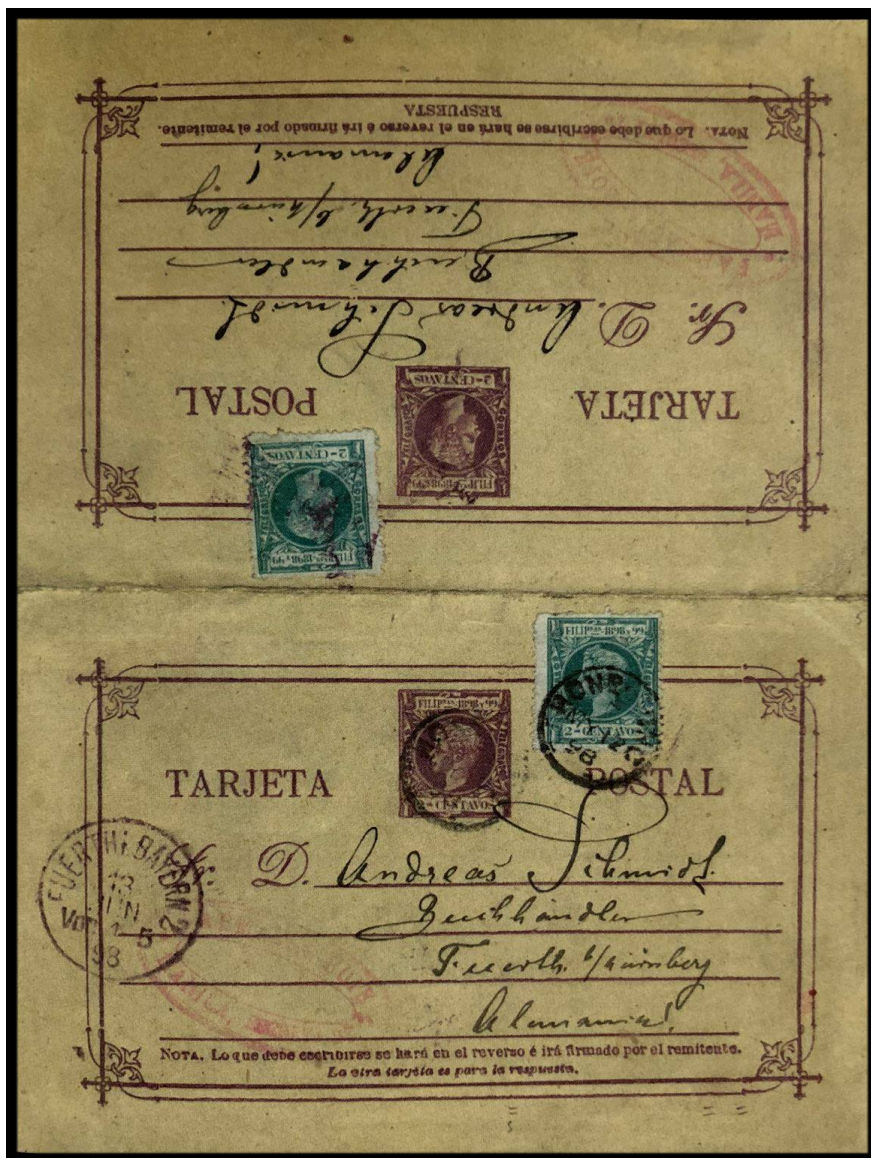 NOTA. Lo que debe escribirse se hará en el reverso é irá firmado por el remitente.
RESPUESTA
Alemania!
Fuerth b/Nürnberg
Buchhändler
Sr. D. Andreas Schmidt.
2-CENTAVOS
CORREOS
FILIPNAS 1898 y 99
TARJETA POSTAL
2-CENTAVOS
FILIPNAS-1898 y 99
FILIPNAS-1898 y 99
2-CENTAVOS
HONG KONG
MY 12
98
FILIPNAS-1898 y 99
2-CENTAVOS
TARJETA POSTAL
FUERTH i. BAYERN 2
13
JUN
Vor 5
98
Sr. D. Andreas Schmidt.
Buchhändler
Fuerth b/Nürnberg
Alemania!
NOTA. Lo que debe escribirse se hará en el reverso é irá firmado por el remitente.
La otra tarjeta es para la respuesta.